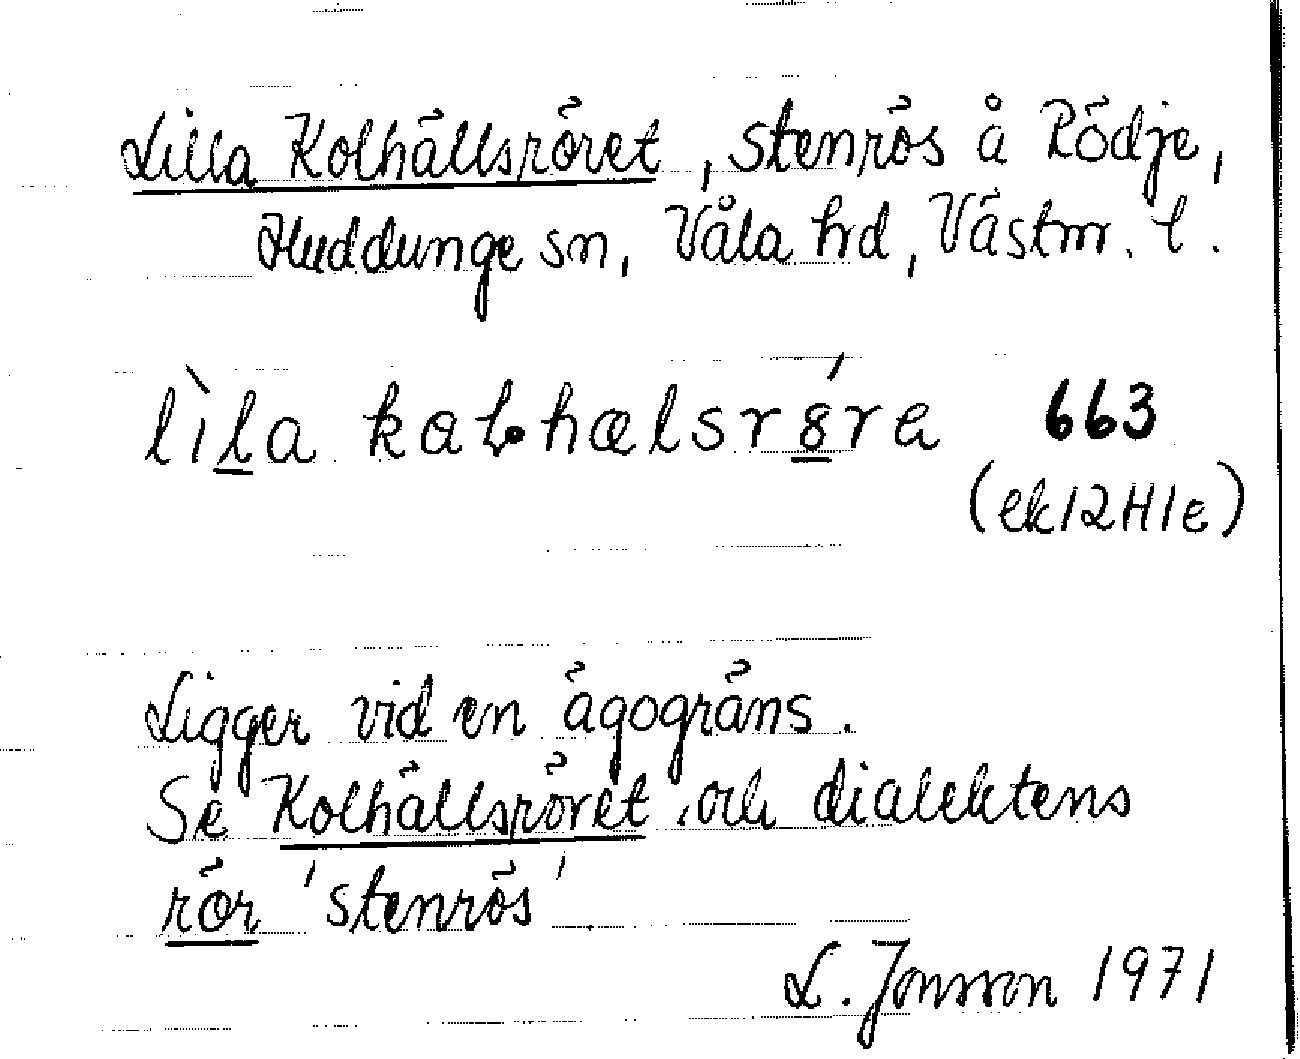 Lilla Kolhällsröret, stenrös å Rödje,
Huddunge sn, Våla hd, Västm. l.
lìla kaƚhælsrö́ra 663
(ek12H1e)
Ligger vid en ägogräns.
Se Kolhällsröret och dialektens
rör 'stenrös'
L. Jonsson 1971